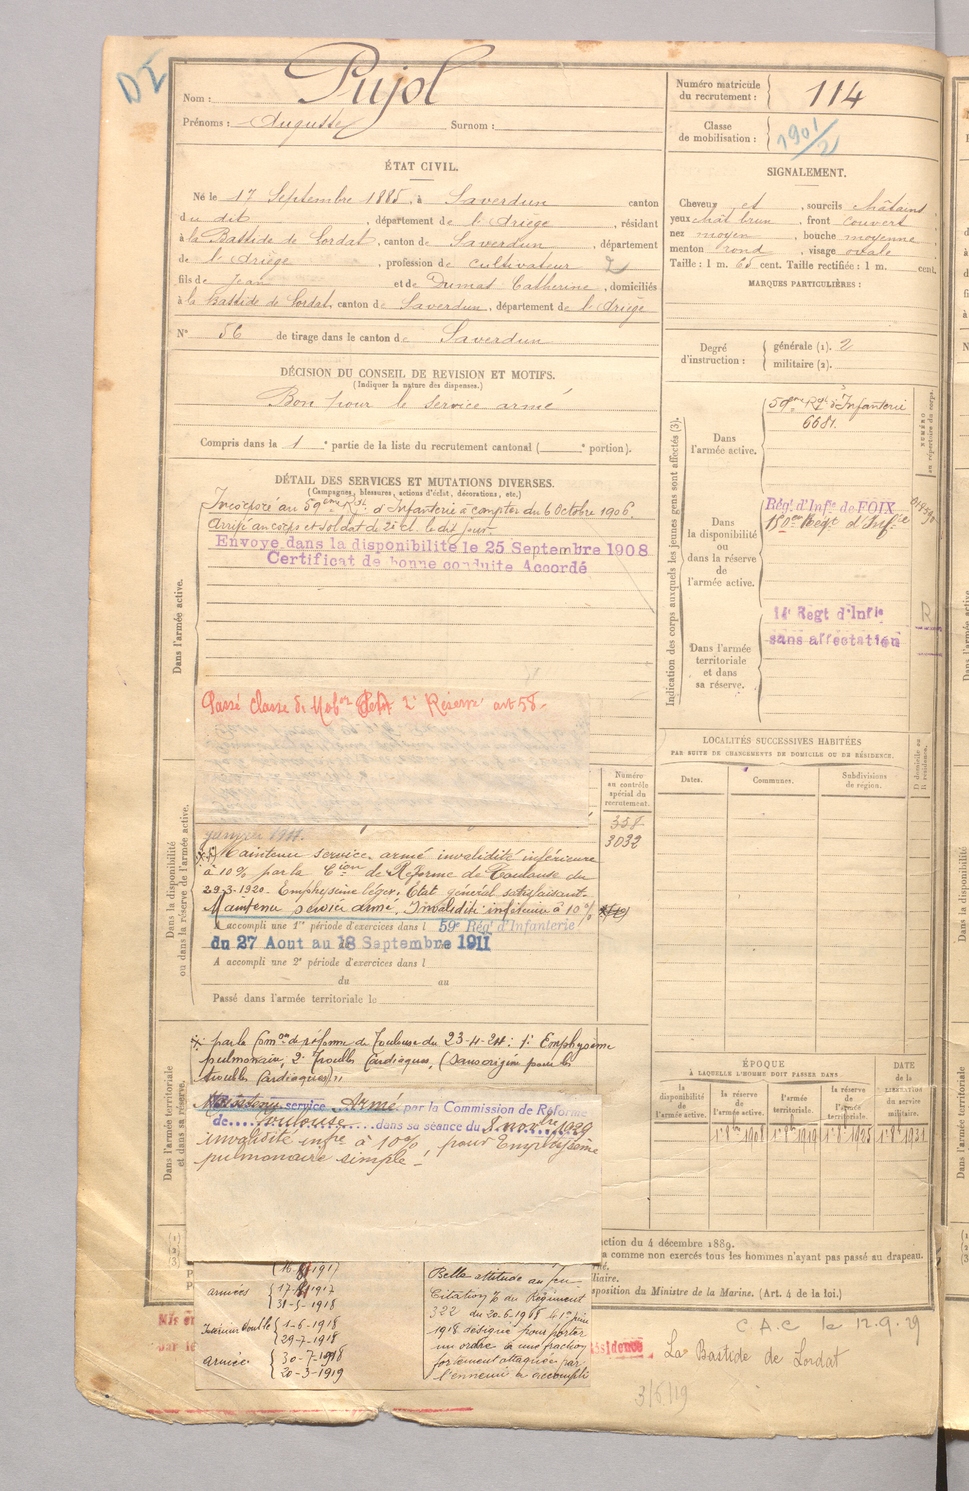 DI
Nom : Pujol
Prénoms : Auguste Surnom :
ÉTAT CIVIL.
Né le 17 Septembre 1885, à Saverdun canton
du dit, département de l'Ariège, résidant
à la Bastide de Lordat, canton de Saverdun, département
de l'Ariège, profession de cultivateur
fils de Jean et de Dumas Catherine, domiciliés
à la Bastide de Lordat, canton de Saverdun, département de l'Ariège
N° 56 de tirage dans le canton de Saverdun
DÉCISION DU CONSEIL DE REVISION ET MOTIFS.
(Indiquer la nature des dispenses.)
Bon pour le service armé
Compris dans la 1 e partie de la liste du recrutement cantonal ( e portion).
DÉTAIL DES SERVICES ET MUTATIONS DIVERSES.
(Campagnes, blessures, actions d'éclat, décorations, etc.)
Dans l'armée active.
Incorporé au 59ème Rgt d'Infanterie à compter du 6 Octobre 1906.
Arrivé au corps et soldat de 2e cl. le dit jour
Envoyé dans la disponibilité le 25 Septembre 1908
Certificat de bonne conduite Accordé
Passé classe de Mobon 2e Réserve art 58.
Dans la disponibilité
ou dans la réserve de l'armée active.
Numéro
au contrôle
spécial du
recrutement.
358
3032
janvier 1911.
Maintenu service armé invalidité inférieure
à 10% par la Cion de Réforme de Toulouse du
29-3-1920. Emphysème léger. État général satisfaisant.
Maintenu service armé. Invalidité inférieure à 10%
A accompli une 1re période d'exercices dans l 59e Régt d'Infanterie
du 27 Aout au 18 Septembre 1911
A accompli une 2e période d'exercices dans l
du au
Passé dans l'armée territoriale le
Dans l'armée territoriale
et dans sa réserve.
par la Comon de réforme de Toulouse du 23-4-24 : 1° Emphysème
pulmonaire, 2° Troubles Cardiaques, (Sans origine pour les
troubles Cardiaques)
Maintenu service Armé par la Commission de Réforme
de Toulouse dans sa séance du 8 novbre 1929
invalidité infre à 10%, pour Emphysème
pulmonaire simple
1917
armées 17 1917
31-5-1918
Intérieur double 1-6-1918
29-7-1918
armées 30-7-1918
20-3-1919
Belle attitude au feu
Citation du Régiment
322 du 20-6-1918 juin
1918 désigné pour porter
un ordre à une fraction
fortement attaquée par
l'ennemi a accompli
Numéro matricule
du recrutement : 114
Classe
de mobilisation : 1901/2
SIGNALEMENT.
Cheveux et, sourcils châtains
yeux chât brun, front couvert
nez moyen, bouche moyenne
menton rond, visage ovale
Taille : 1 m. 65 cent. Taille rectifiée : 1 m. cent.
MARQUES PARTICULIÈRES :
Degré
d'instruction :
générale (1). 2
militaire (2).
Indication des corps auxquels les jeunes gens sont affectés (3).
Dans
l'armée active.
59me Rgt d'Infanterie
6681
NUMÉRO
au répertoire du corps.
Dans
la disponibilité
ou
dans la réserve
de
l'armée active.
Régt d'Infie de FOIX
Dans l'armée
territoriale
et dans
sa réserve.
Regt d'Infie
sans affectation
R
LOCALITÉS SUCCESSIVES HABITÉES
PAR SUITE DE CHANGEMENTS DE DOMICILE OU DE RÉSIDENCE.
Dates.
Communes.
Subdivisions
de région.
D domicile ou
R résidence.
ÉPOQUE
À LAQUELLE L'HOMME DOIT PASSER DANS
DATE
de la
LIBÉRATION
du service
militaire.
la
disponibilité
de
l'armée active.
la réserve
de
l'armée active.
l'armée
territoriale.
la réserve
de
l'armée
territoriale.
1er 8bre 1908
1er 8bre 1919
1er 8bre 1925
1er 8bre 1931
ction du 4 décembre 1889.
a comme non exercés tous les hommes n'ayant pas passé au drapeau.
sposition du Ministre de la Marine. (Art. 4 de la loi.)
C.A.C le 12.9.29
Résidence La Bastide de Lordat